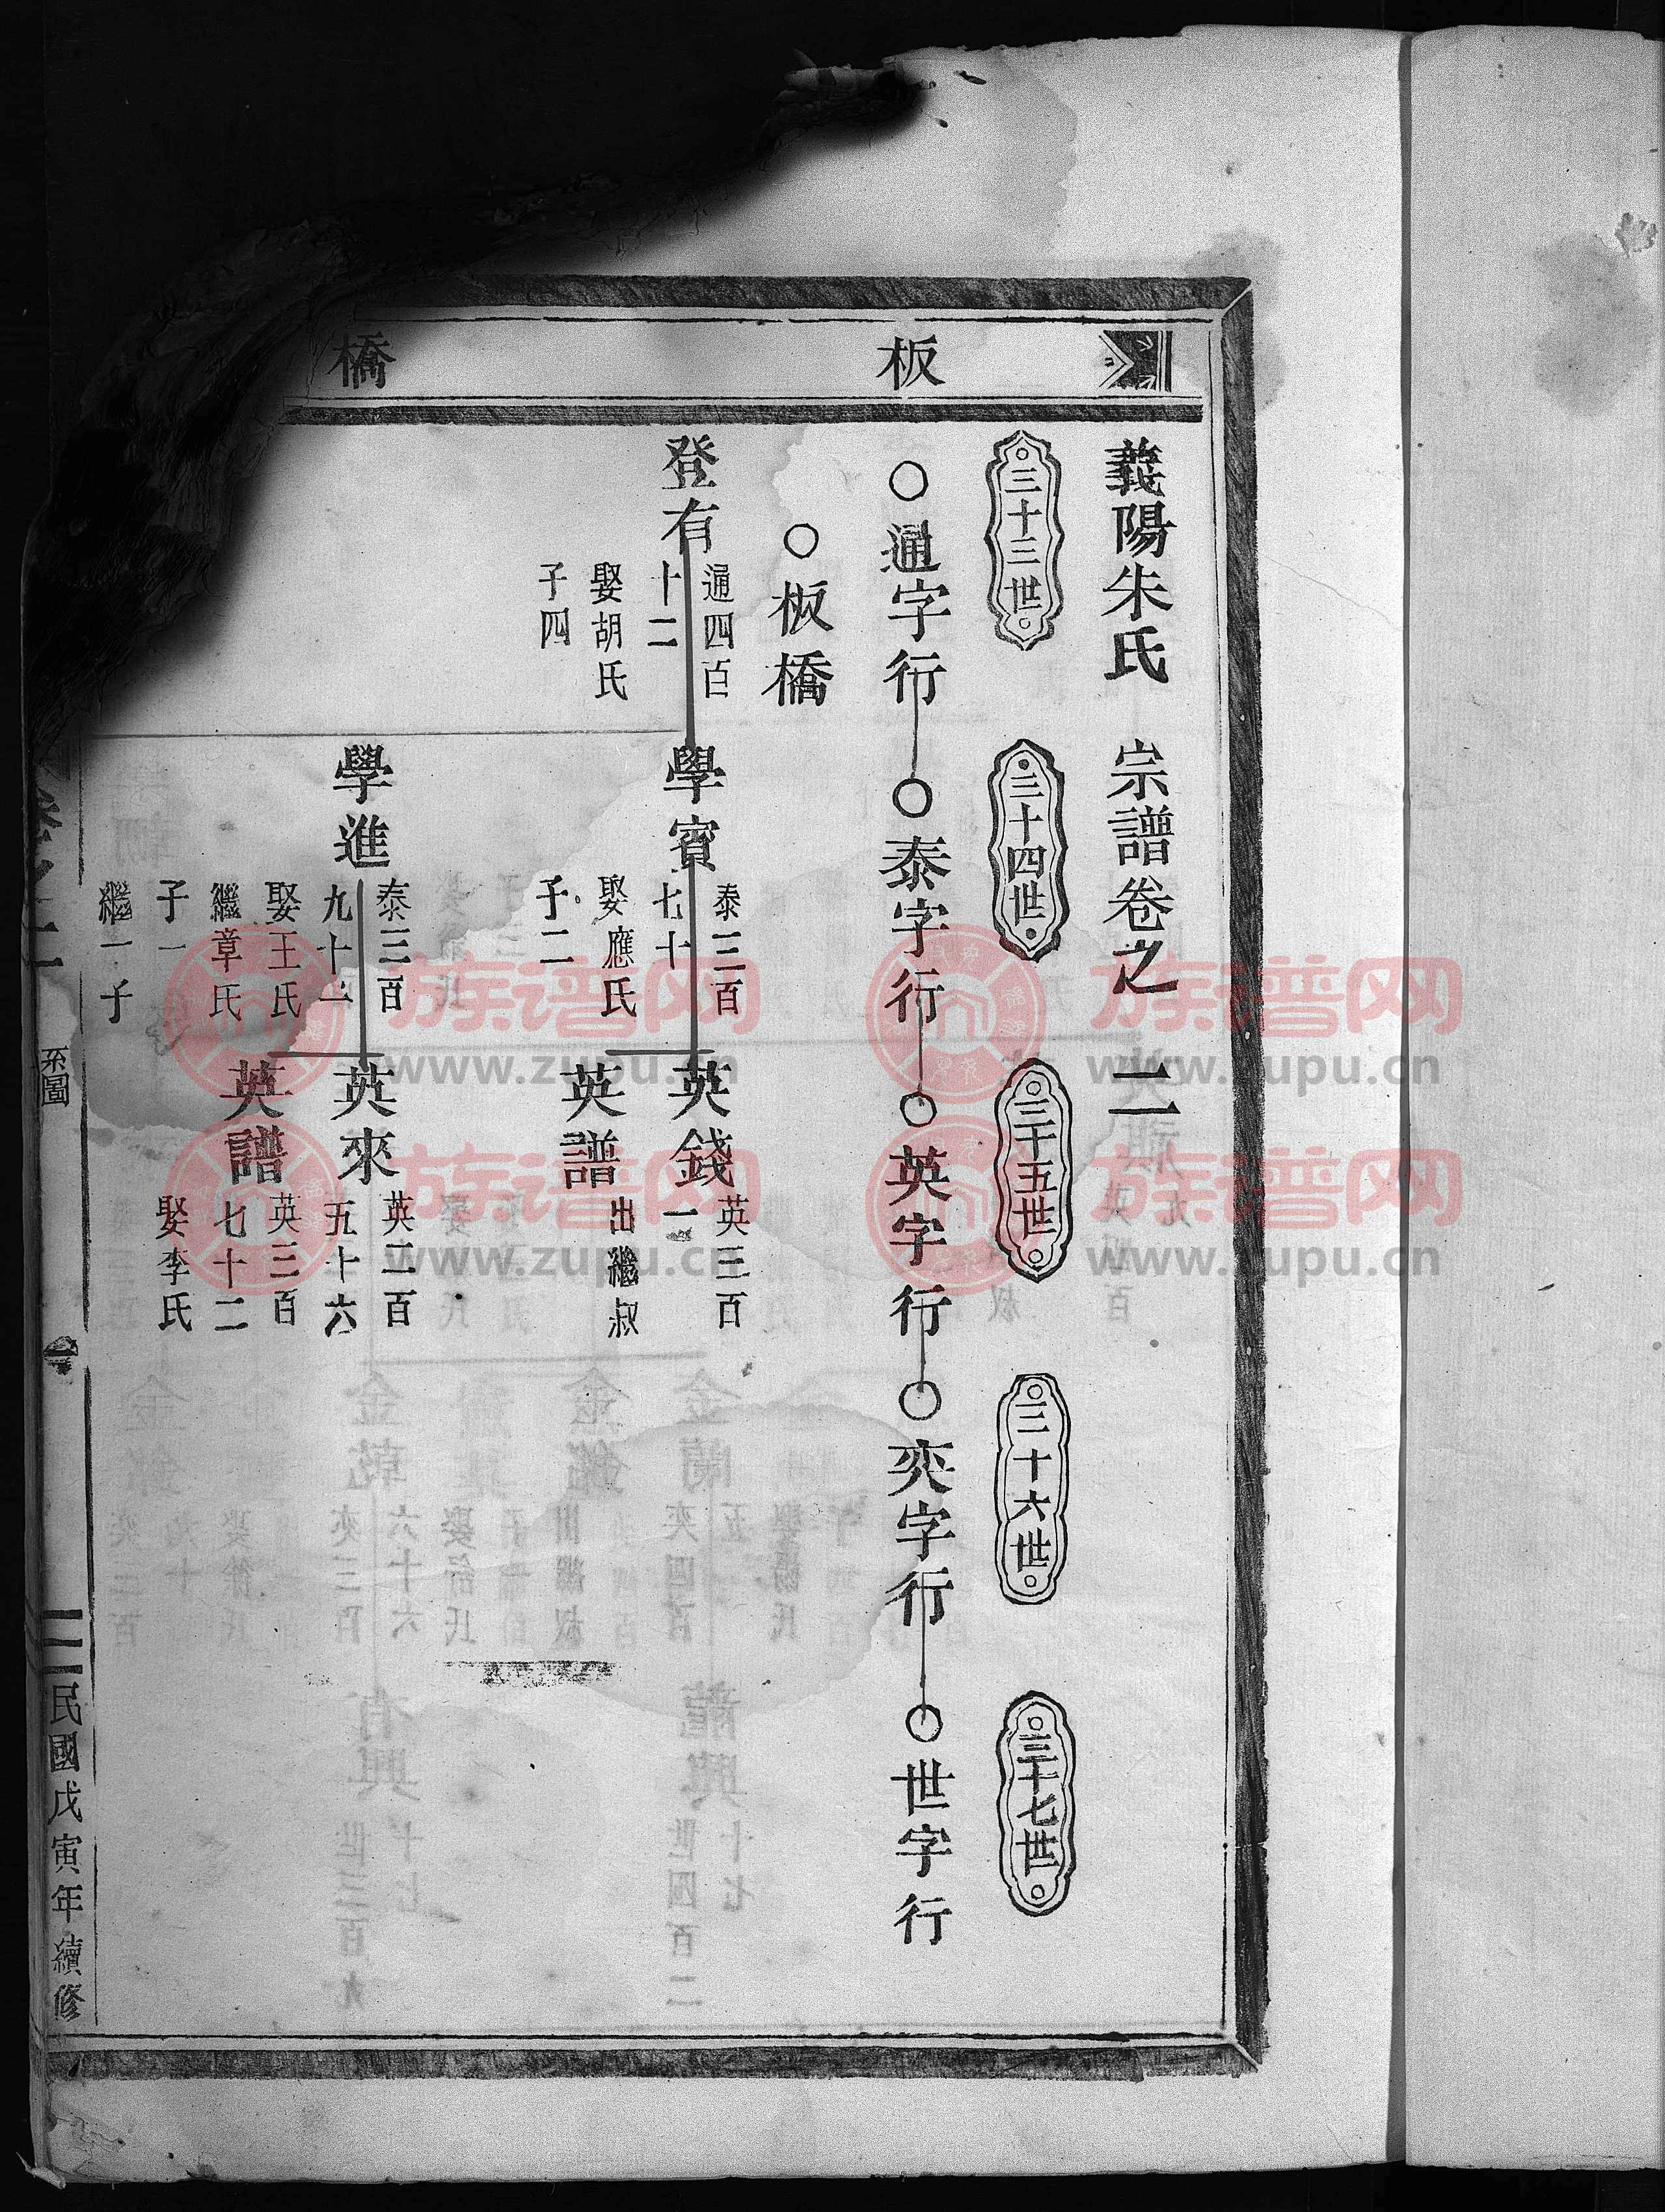 板
橋
義陽朱氏 宗譜卷之二 二
三十三世
三十四世
三十五世
三十六世
三十七世
○通字行○泰字行○英字行○奕字行○世字行
○板橋
登有
通四百
十二
娶胡氏
子四
學賓
泰三百
七十
娶應氏
子二
英錢
英三百
一
英譜
出繼叔
學進
泰三百
九十一
娶王氏
繼章氏
子一
繼一子
英來
英二百
五十六
英譜
英三百
七十二
娶李氏
卷之二
系圖
一
民國戊寅年續修
族谱网
www.zupu.cn
族谱网
www.zupu.cn
族谱网
www.zupu.cn
族谱网
www.zupu.cn